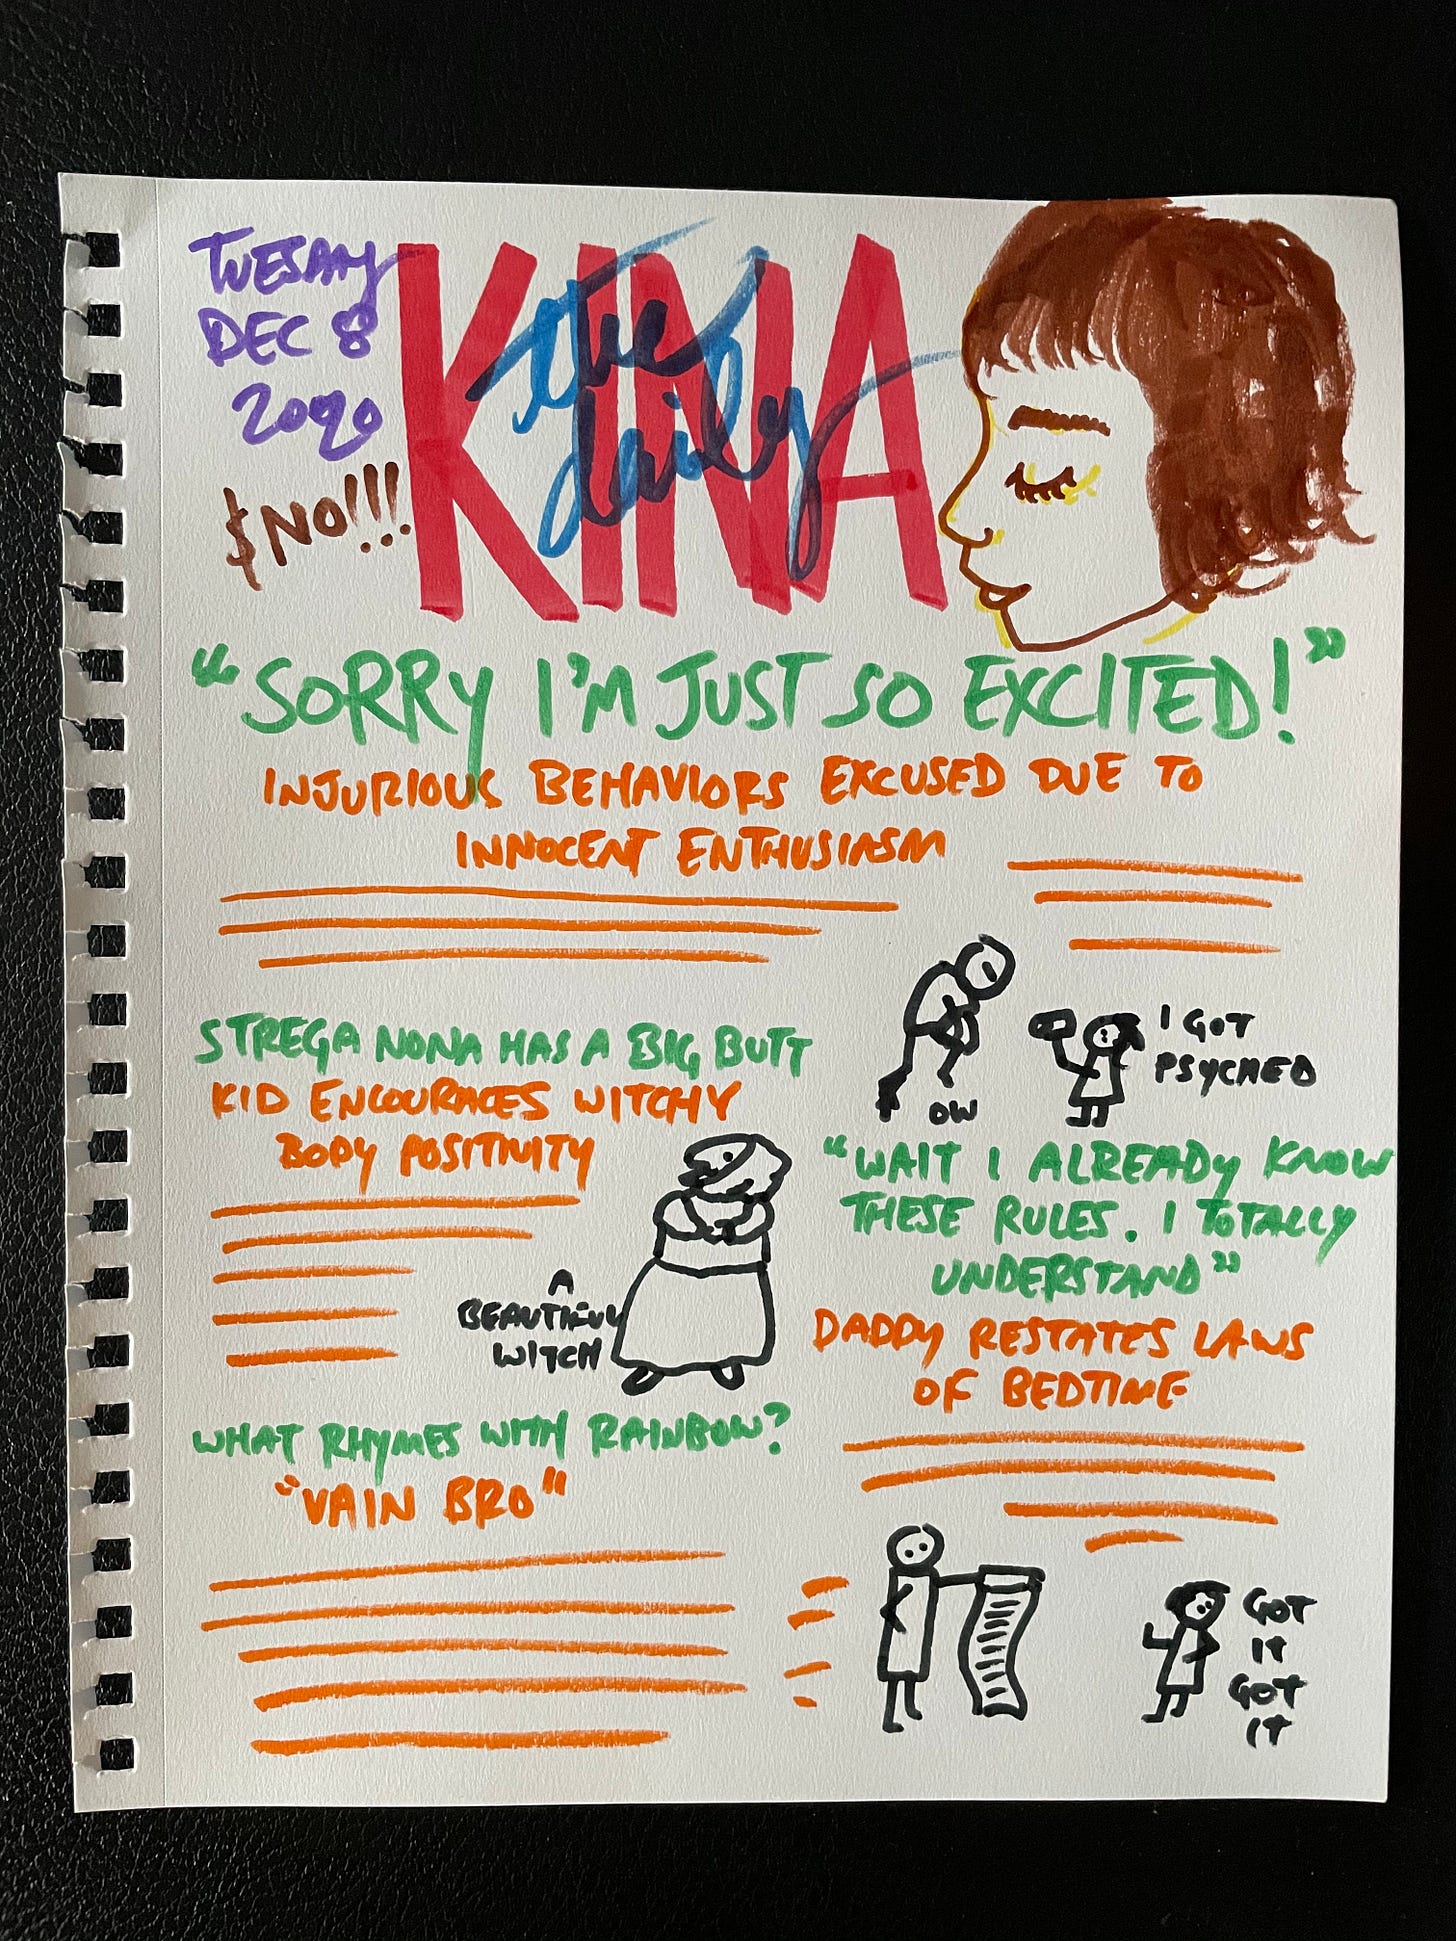 TUESDAY
DEC 8
2020
$NO!!!
KINA
the
daily
"SORRY I'M JUST SO EXCITED!"
INJURIOUS BEHAVIORS EXCUSED DUE TO
INNOCENT ENTHUSIASM
OW
I GOT
PSYCHED
STREGA NONA HAS A BIG BUTT
KID ENCOURAGES WITCHY
BODY POSITIVITY
A
BEAUTIFUL
WITCH
"WAIT I ALREADY KNOW
THESE RULES. I TOTALLY
UNDERSTAND"
DADDY RESTATES LAWS
OF BEDTIME
WHAT RHYMES WITH RAINBOW?
"VAIN BRO"
GOT
IT
GOT
IT